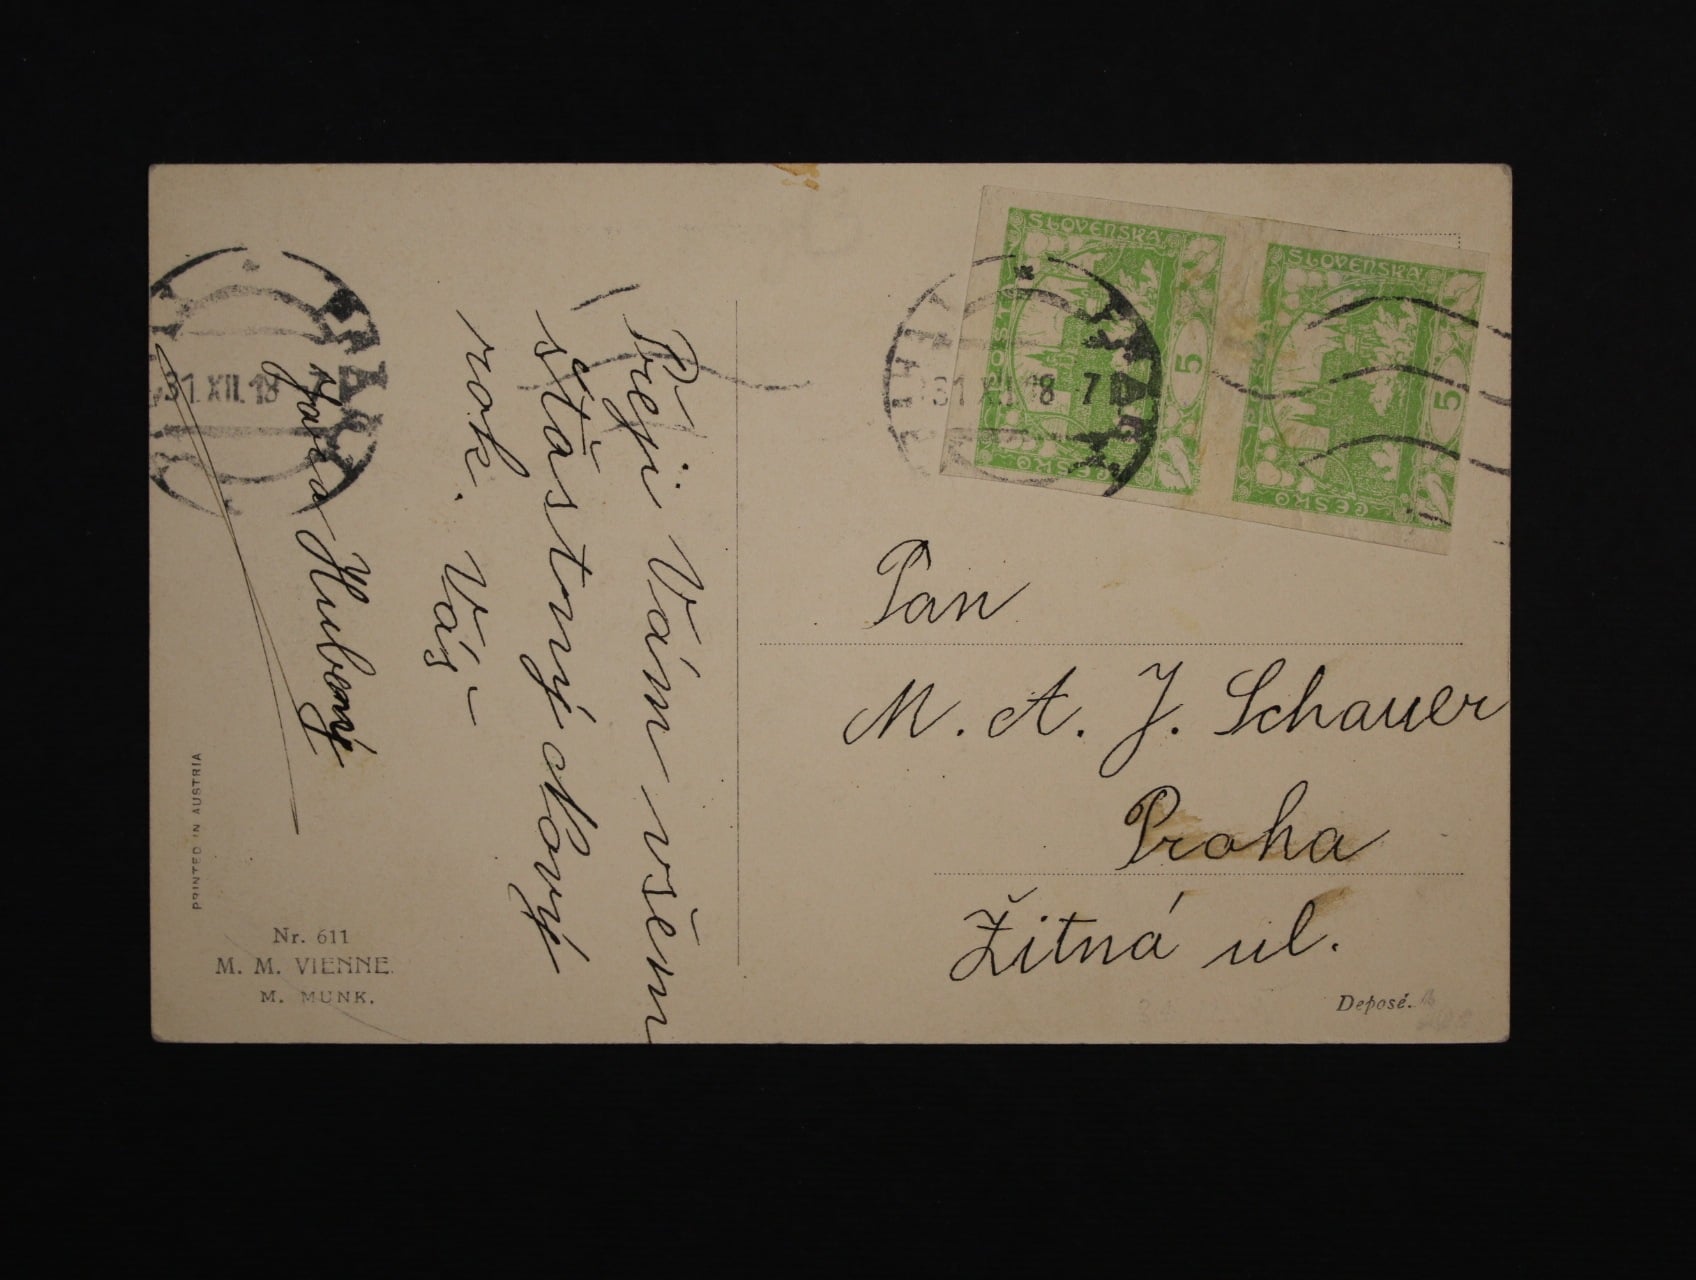 Přeji Vám všem
šťastný Nový
rok. Váš
Hubený
PRINTED IN AUSTRIA
Nr. 611
M. M. VIENNE
M. MUNK.
31.XII.18
31 XII 18 7
POŠTA
ČESKO
SLOVENSKÁ
5
POŠTA
ČESKO
SLOVENSKÁ
5
Pan
M. A. J. Schauer
Praha
Žitná ul.
Deposé.